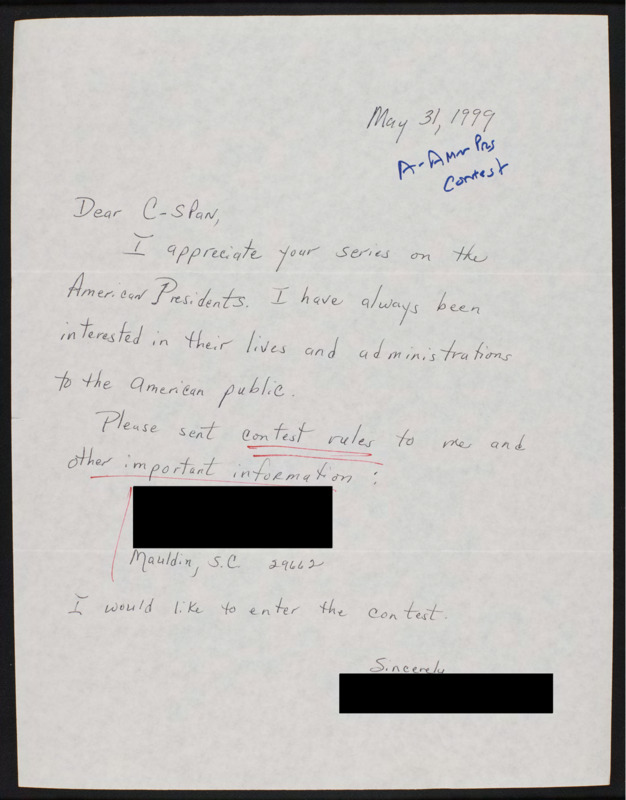 May 31, 1999
A-Amer Pres
Contest
Dear C-SPAN,
I appreciate your series on the
American Presidents. I have always been
interested in their lives and administrations
to the american public.
Please sent contest rules to me and
other important information:
Mauldin, S.C. 29662
I would like to enter the contest.
Sincerely